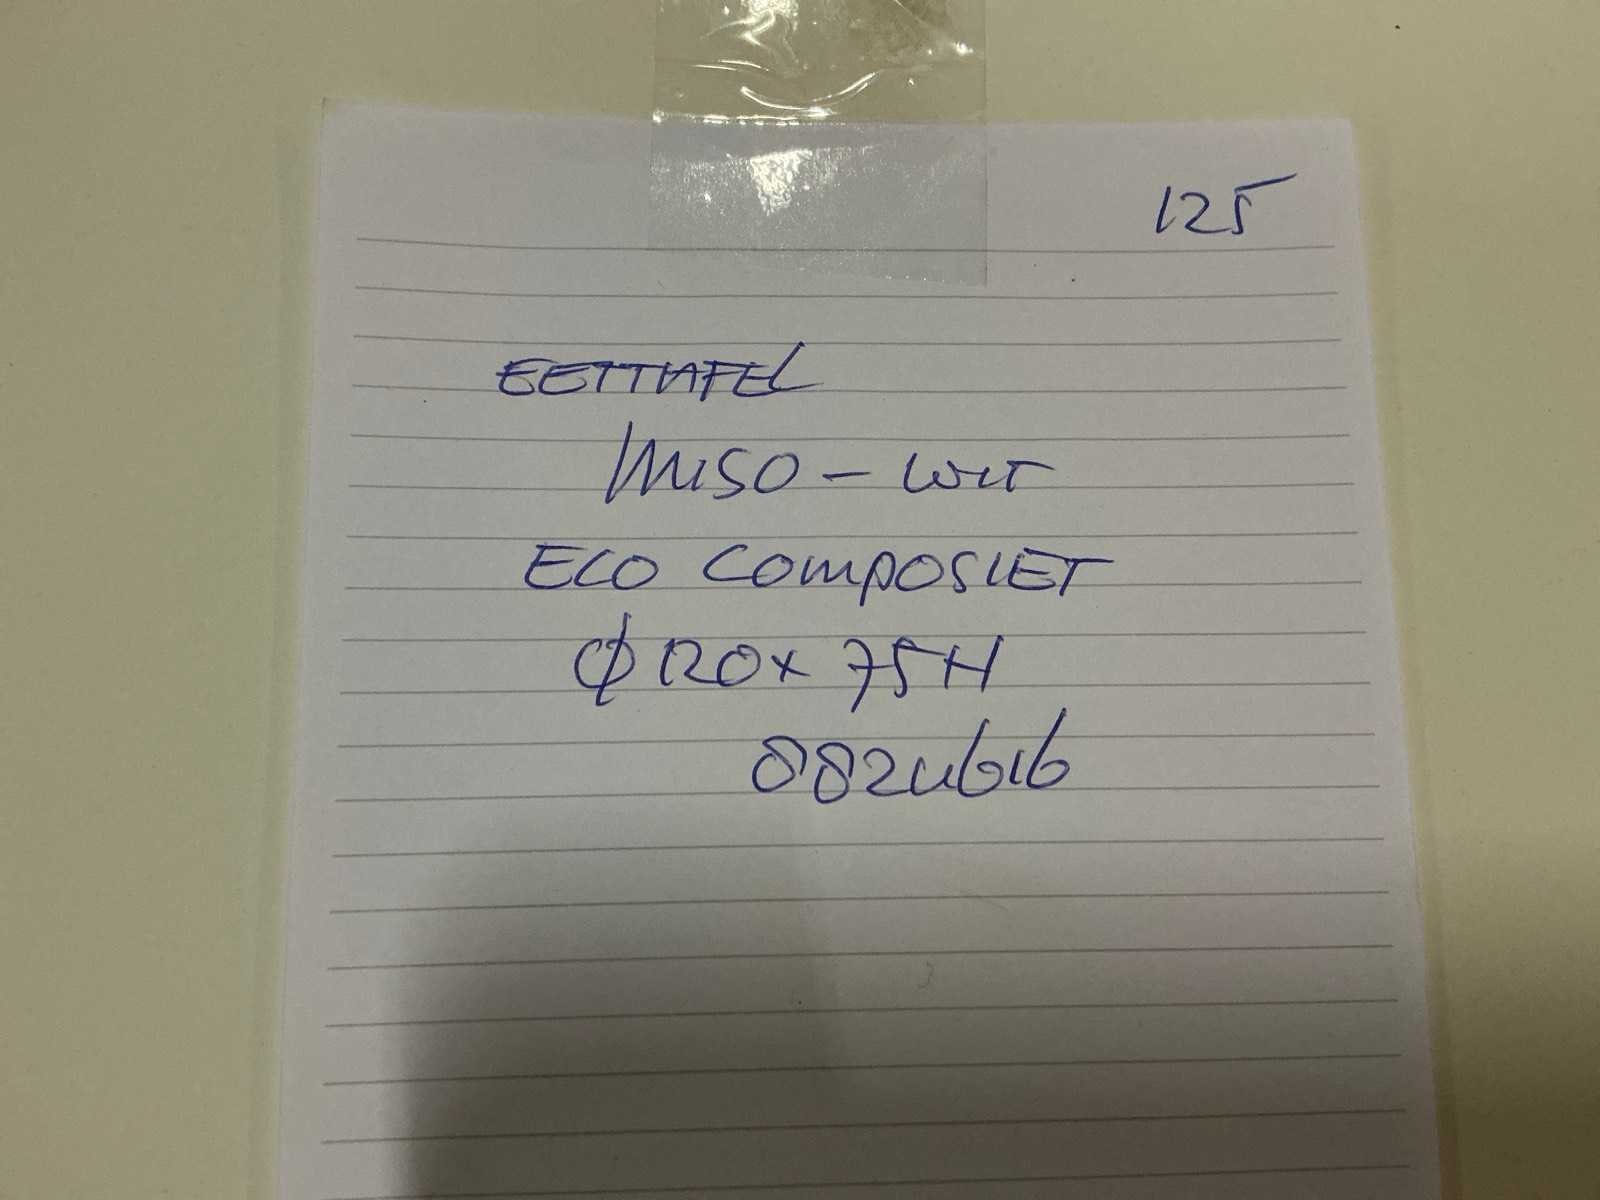 125
EETTAFEL
MISO - WIT
ECO COMPOSIET
Ø 120 x 75 H
8824616